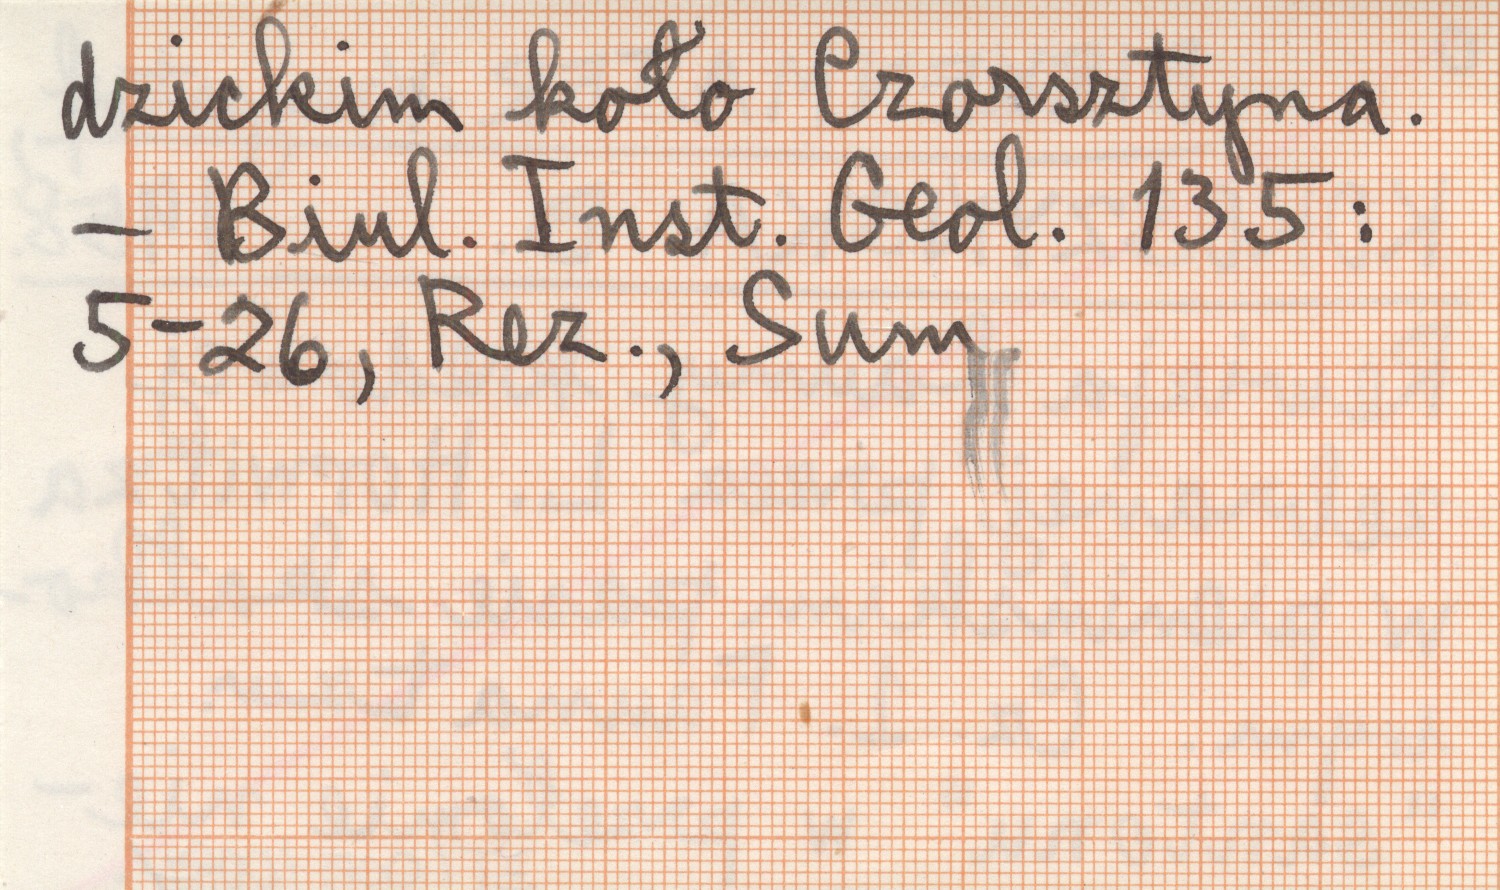 dzickim koło Czorsztyna.
– Biul. Inst. Geol. 135:
5–26, Rez., Sum